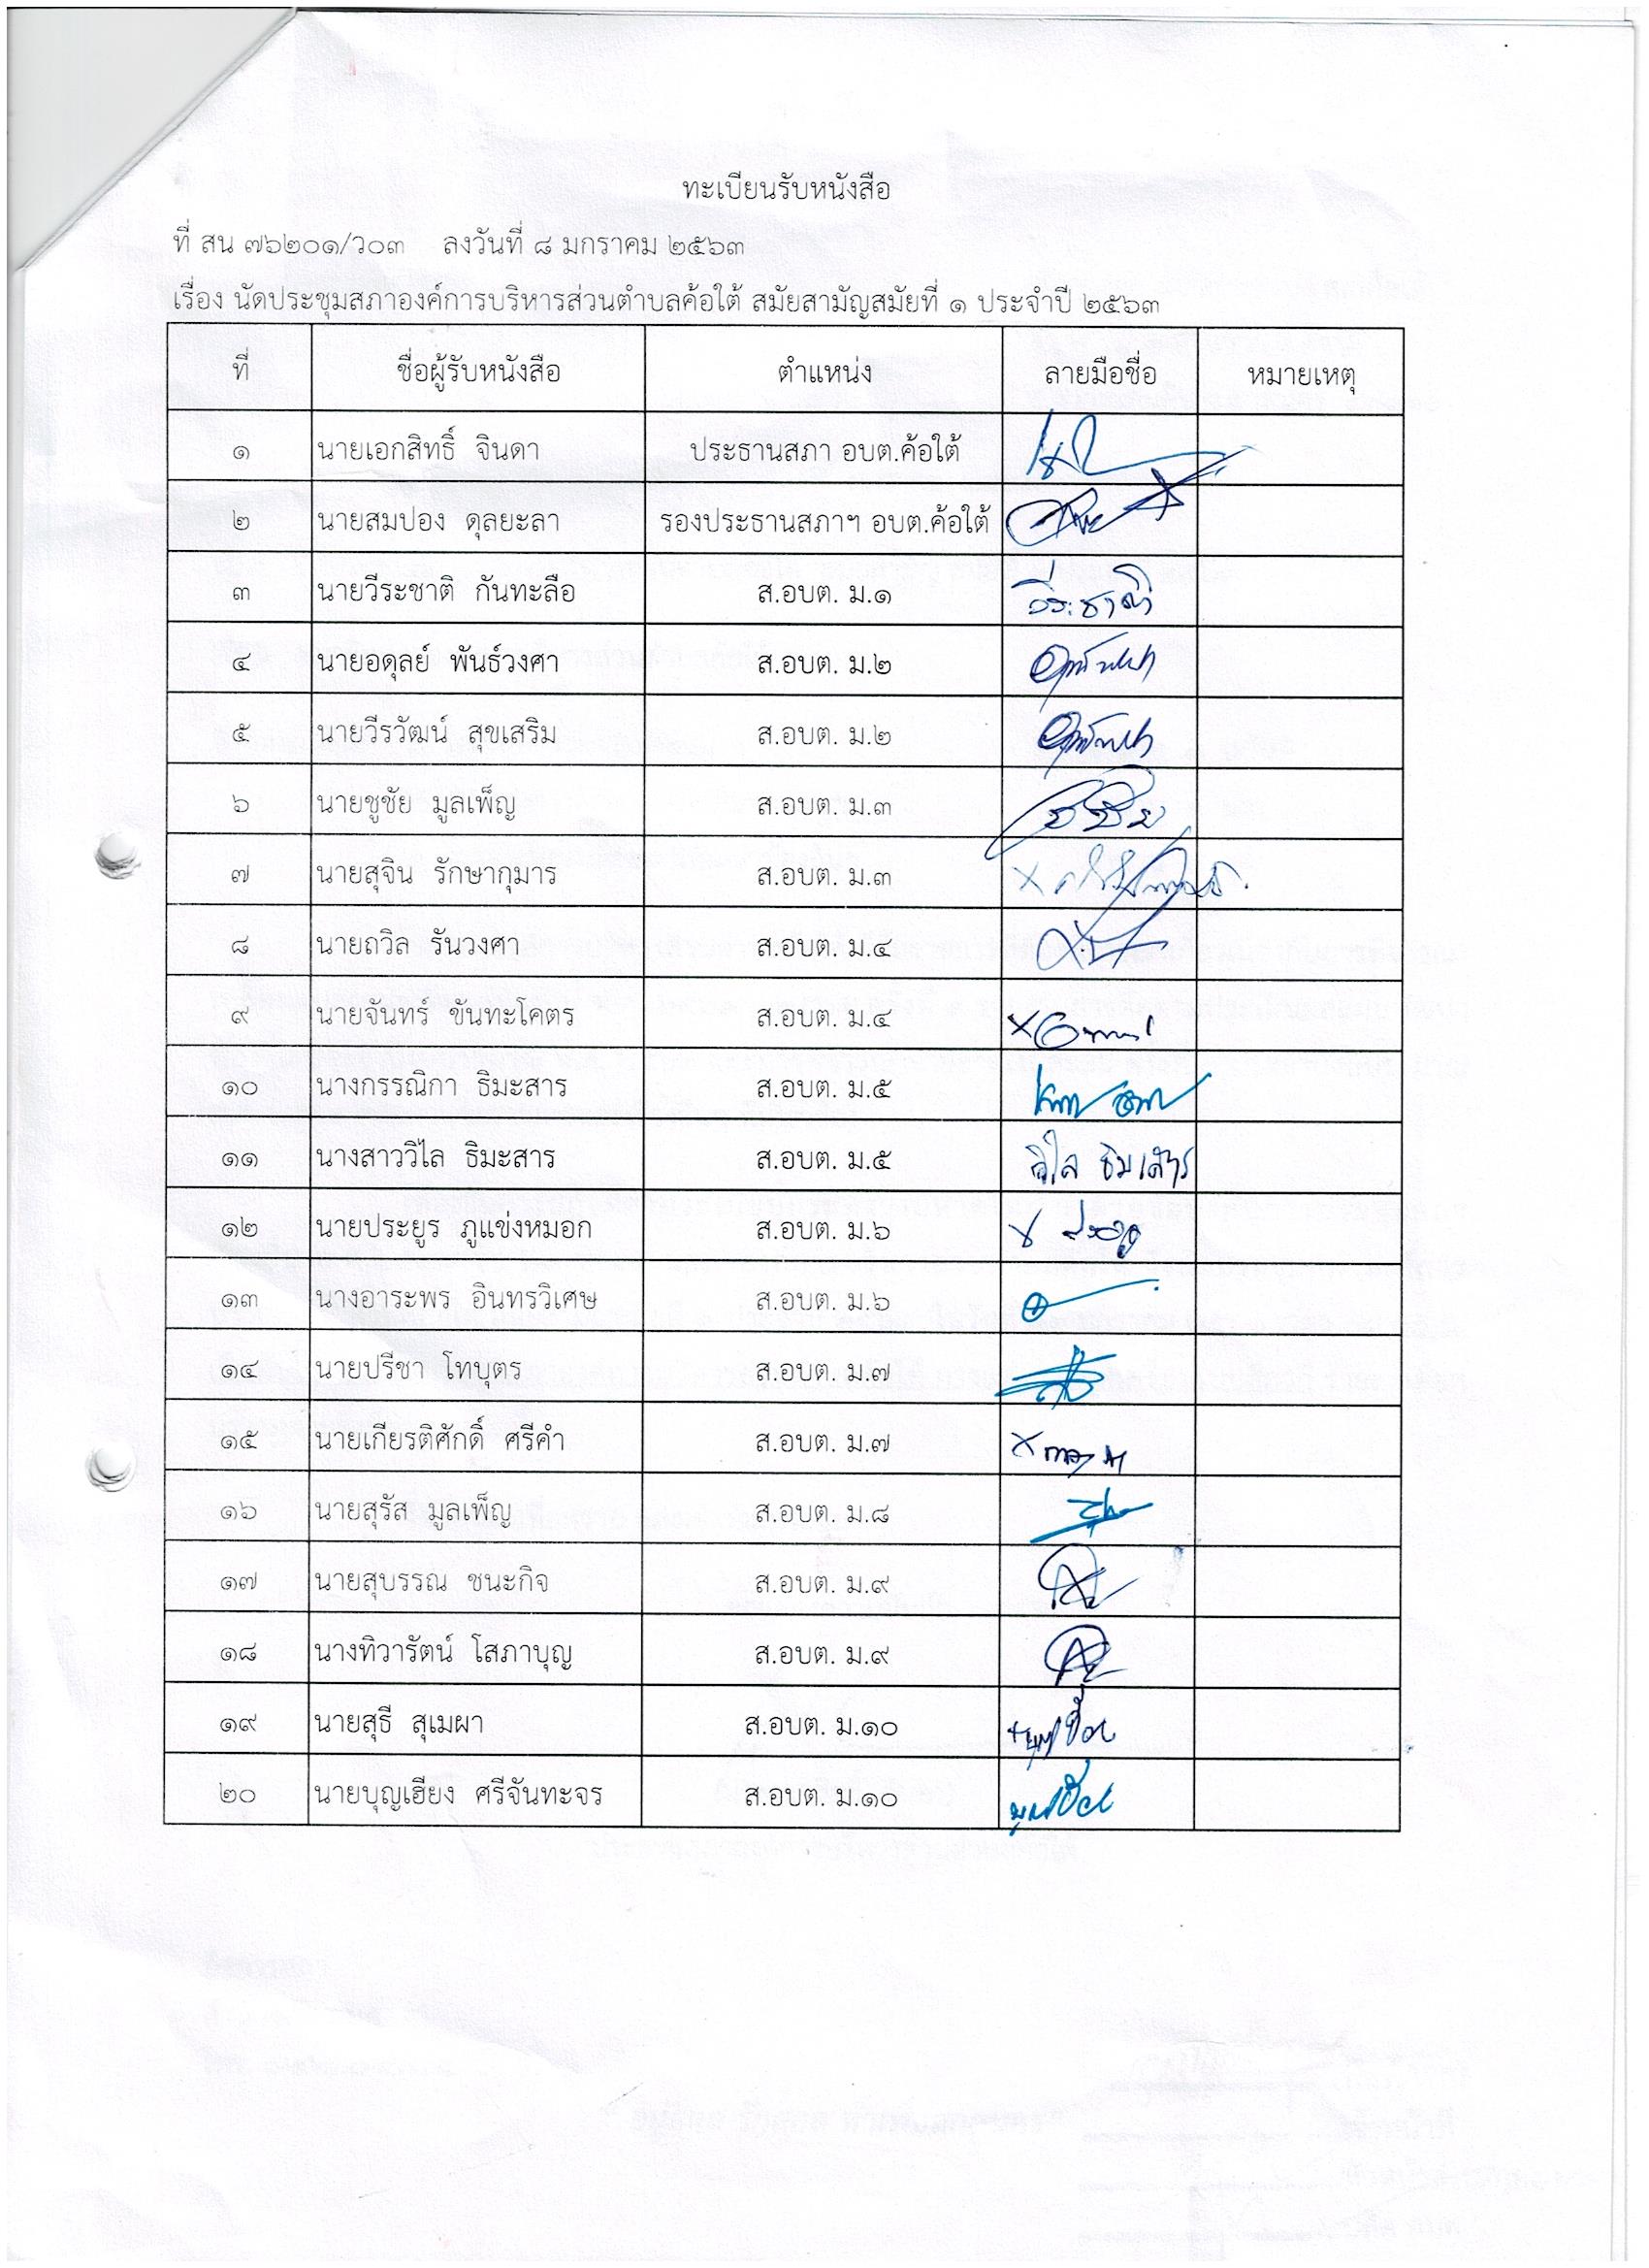 ทะเบียนรับหนังสือ
ที่ สน ๗๖๒๐๑/ว๐๓ ลงวันที่ ๘ มกราคม ๒๕๖๓
เรื่อง นัดประชุมสภาองค์การบริหารส่วนตำบลค้อใต้ สมัยสามัญสมัยที่ ๑ ประจำปี ๒๕๖๓
ที่ ชื่อผู้รับหนังสือ ตำแหน่ง ลายมือชื่อ หมายเหตุ
๑ นายเอกสิทธิ์ จินดา ประธานสภา อบต.ค้อใต้
๒ นายสมปอง ดุลยะลา รองประธานสภาฯ อบต.ค้อใต้
๓ นายวีระชาติ กันทะลือ ส.อบต. ม.๑ วีระชาติ
๔ นายอดุลย์ พันธ์วงศา ส.อบต. ม.๒
๕ นายวีรวัฒน์ สุขเสริม ส.อบต. ม.๒
๖ นายชูชัย มูลเพ็ญ ส.อบต. ม.๓
๗ นายสุจิน รักษากุมาร ส.อบต. ม.๓
๘ นายถวิล รันวงศา ส.อบต. ม.๔
๙ นายจันทร์ ขันทะโคตร ส.อบต. ม.๔
๑๐ นางกรรณิกา ธิมะสาร ส.อบต. ม.๕
๑๑ นางสาววิไล ธิมะสาร ส.อบต. ม.๕ วิไล
๑๒ นายประยูร ภูแข่งหมอก ส.อบต. ม.๖
๑๓ นางอาระพร อินทรวิเศษ ส.อบต. ม.๖
๑๔ นายปรีชา โทบุตร ส.อบต. ม.๗
๑๕ นายเกียรติศักดิ์ ศรีคำ ส.อบต. ม.๗
๑๖ นายสุรัส มูลเพ็ญ ส.อบต. ม.๘
๑๗ นายสุบรรณ ชนะกิจ ส.อบต. ม.๙
๑๘ นางทิวารัตน์ โสภาบุญ ส.อบต. ม.๙
๑๙ นายสุธี สุเมผา ส.อบต. ม.๑๐
๒๐ นายบุญเฮียง ศรีจันทะจร ส.อบต. ม.๑๐